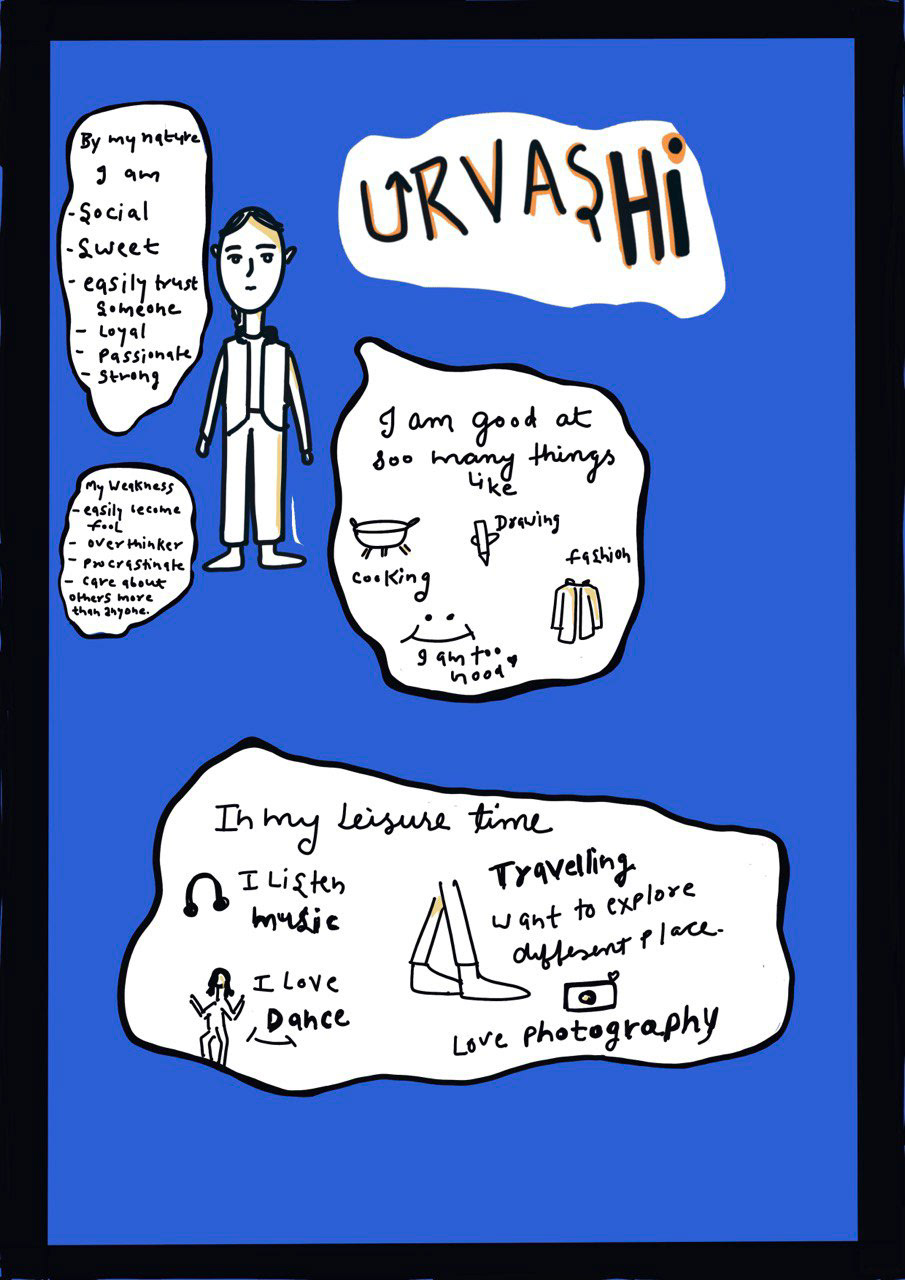 URVASHi
By my nature
I am
- Social
- Sweet
- easily trust
someone
- Loyal
- Passionate
- Strong
My Weakness
- easily become
fool
- overthinker
- procrastinate
- care about
others more
than anyone.
I am good at
soo many things
Like
Drawing
cooking
fashion
I am too
In my Leisure time
I Listen
music
I Love
Dance
Travelling
want to explore
different place.
Love photography